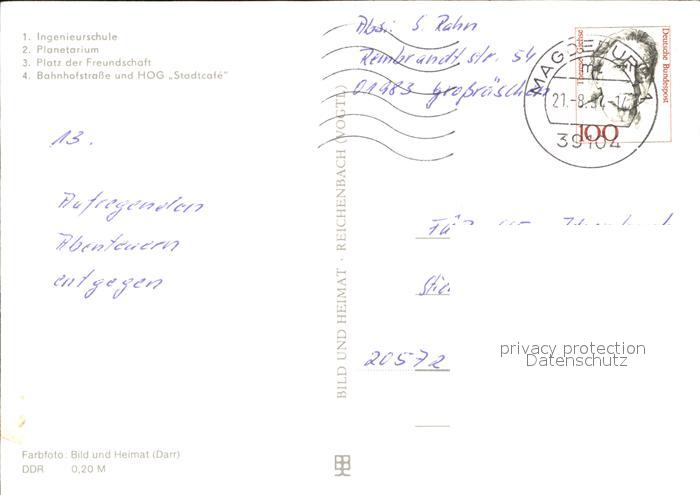 1. Ingenieurschule
2. Planetarium
3. Platz der Freundschaft
4. Bahnhofstraße und HOG „Stadtcafé"
Abs: S. Rahn
Rembrandtstr. 54
01983 Großräschen
MAGDEBURG 1
mz
21.-8.97-17
39104
Deutsche Bundespost
100
13.
Aufregenden
Abenteuern
entgegen
BILD UND HEIMAT · REICHENBACH (VOGTL)
20572
privacy protection
Datenschutz
Farbfoto: Bild und Heimat (Darr)
DDR 0,20 M